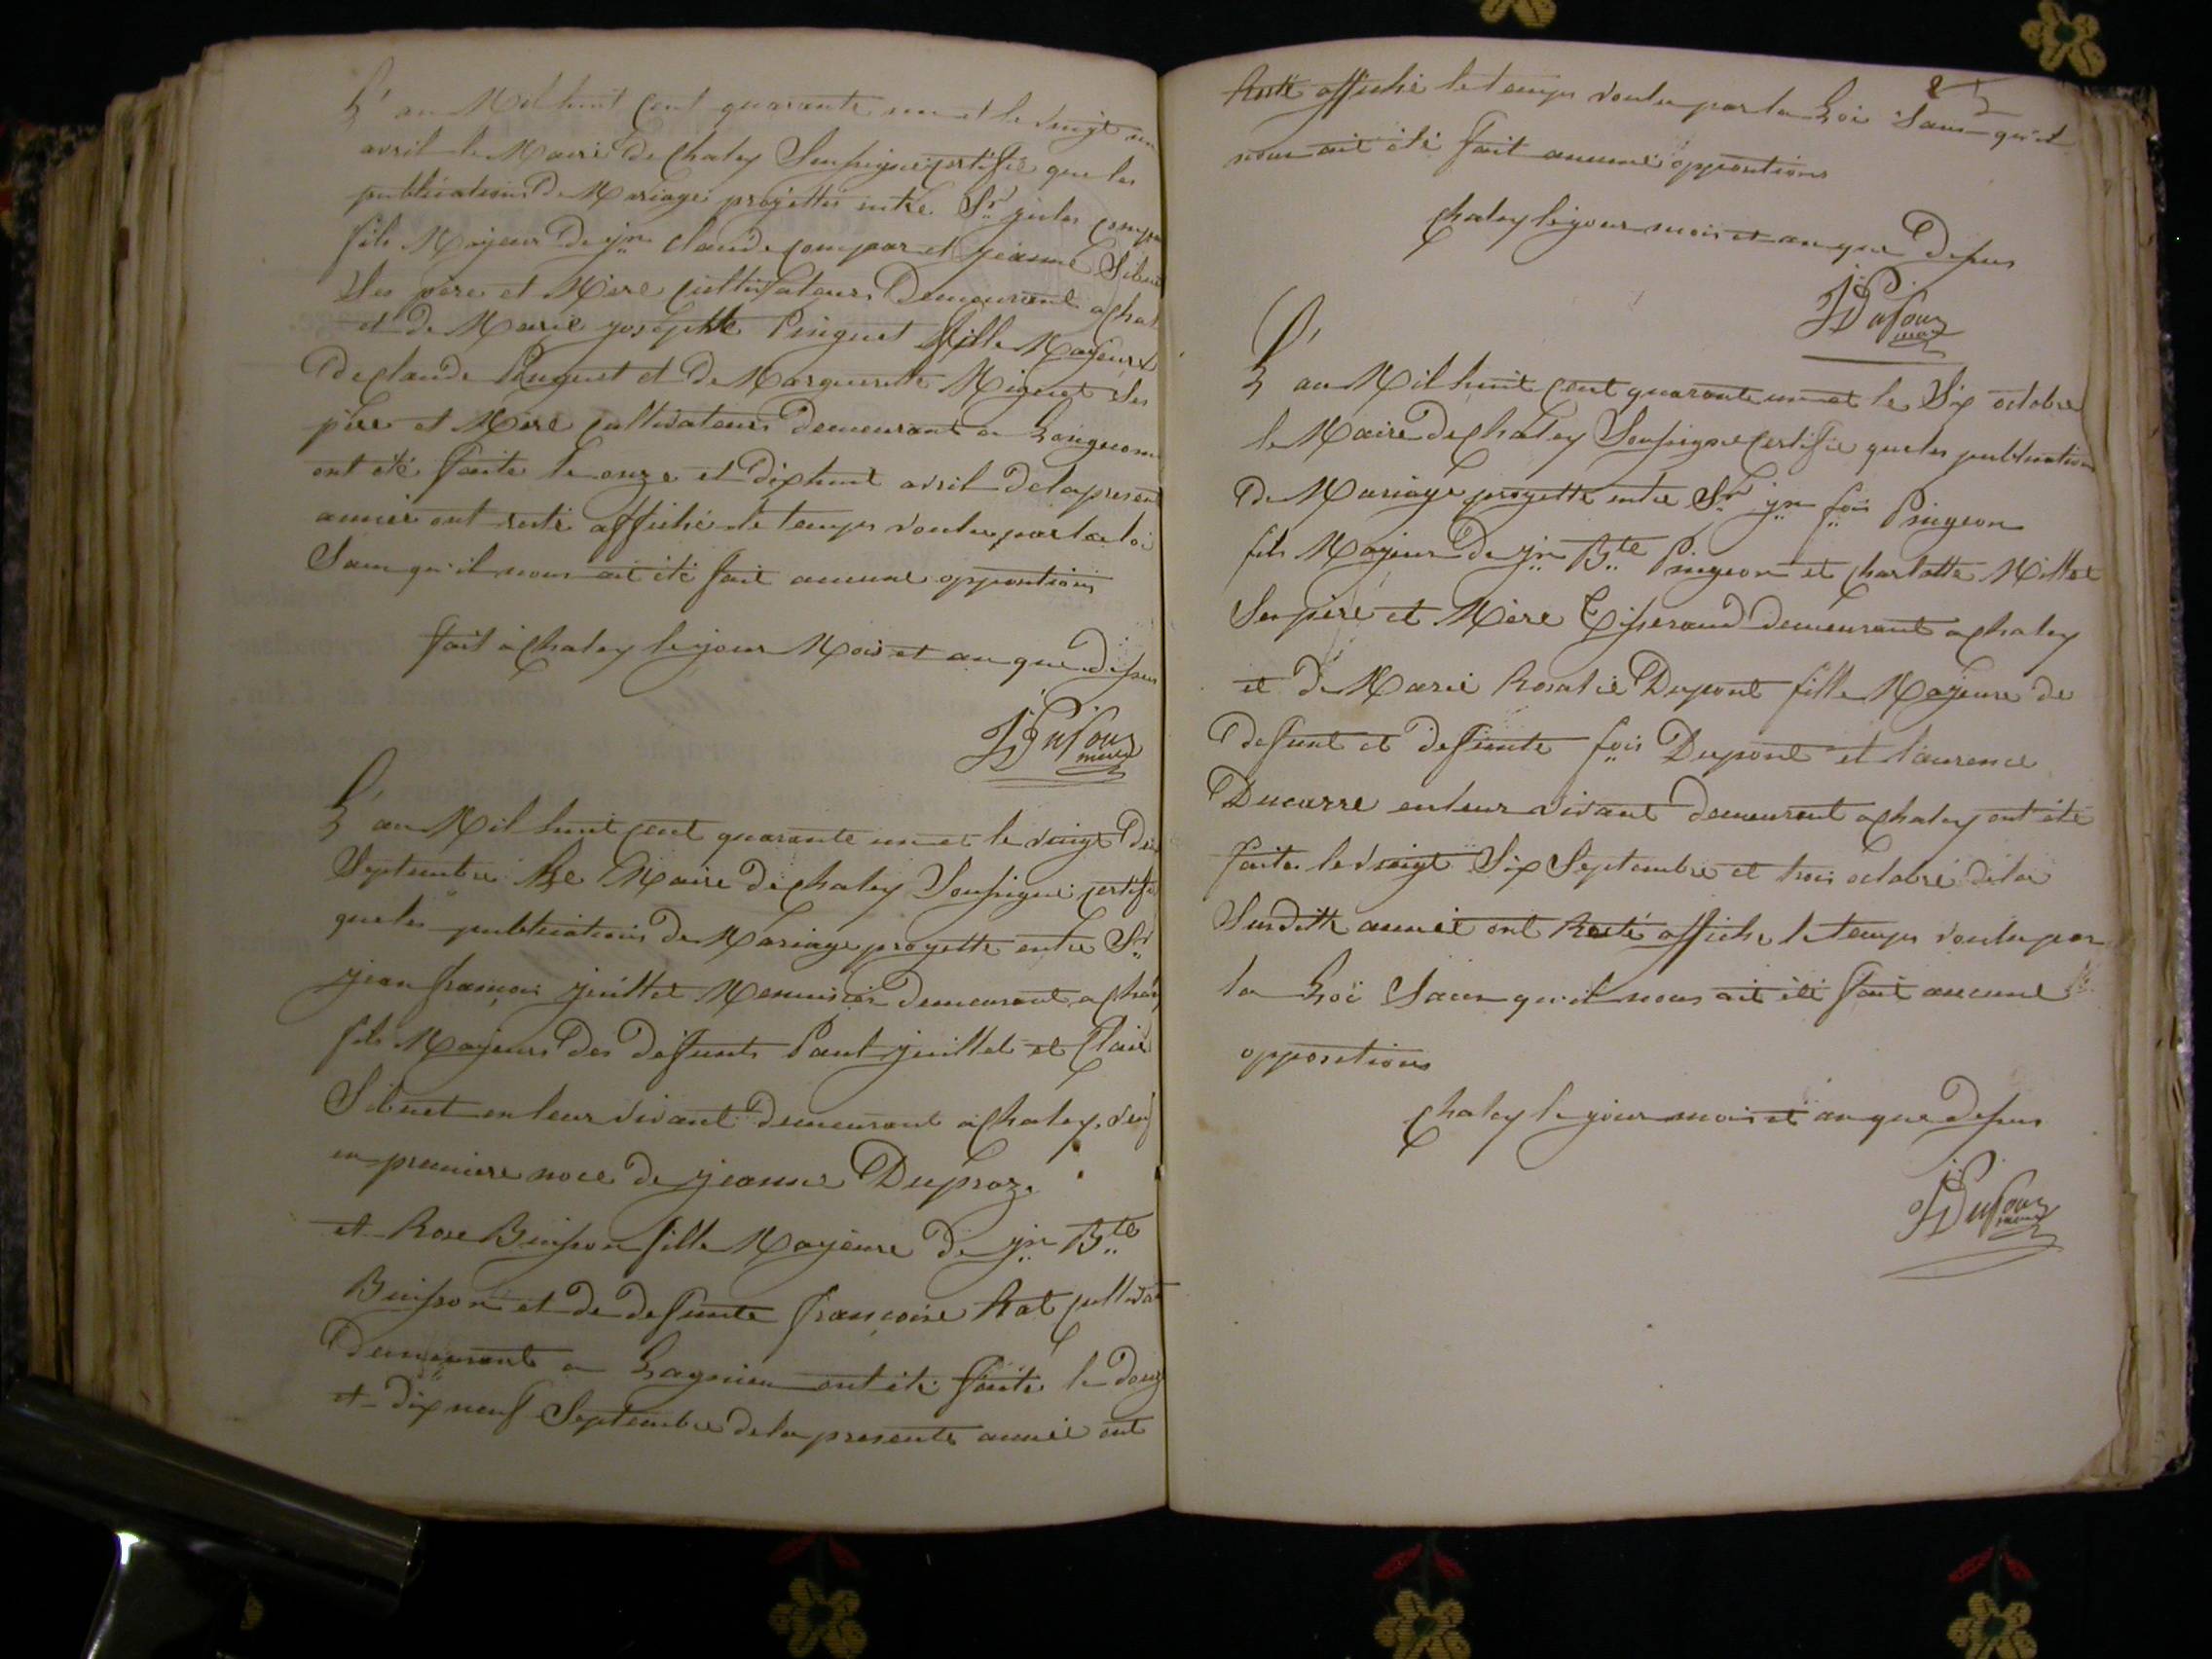 L'an Mil huit cent quarante un et le vingt un
avril le Maire de chaley Soussigné certifie que les
publications de Mariage projettés entre Sr jules compa
fils Majeur de jn claude compar et jeanne Sibuet
Ses père et Mère cultivateurs Demeurant a chal
et de Marie josephte Pinguet fille Majeure
De claude Pinguet et de Margueritte Miguet Ses
père et Mère cultivateurs Demeurant a Longecom
ont été faite le onze et dix huit avril de la present
année ont resté affiché le temps voulu par la loi
Sans qu'il nous ait été fait aucune oppositions
fait à chaley le jour Mois et an que dessus
JJ Dufour
maire
L'an Mil huit cent quarante un et le vingt Deux
Septembre Le Maire de chaley Soussigné certifie
que les publications de Mariage progetté entre Sr
jean françois juillet Menuisier demeurant a chaley
fils Majeur des defunts Paul juillet et Claire
Sibuet en leur vivant Demeurant a chaley, veuf
en premiere noce de jeanne Dupraz
et Rose Buisson fille Majeure De jn Bte
Buisson et de defunte françoise Rat cultivat
Demeurant a Lagnieu ont été faite le Douz
et dix neuf Septembre de la presente année ont
85
Resté affiché le temps voulu par la Loi Sans qu'il
nous ait été fait aucune oppositions
chaley le jour mois et an que Dessus
JJ Dufour
maire
L'an Mil huit cent quarante un et le Six octobre
le Maire de chaley Soussigné certifie que les publications
De Mariage progetté entre Sr jn fois Pingeon
fils Majeur de jn Bte Pingeon et charlotte Millet
Ses père et Mère Tisserand demeurant a chaley
et de Marie Rosalie Dupont fille Majeure de
Defunt et defunte fois Dupont et laurence
Ducarre en leur vivant demeurant a chaley ont été
faites le vingt Six Septembre et trois octobre de la
Susditte année ont Resté affiché le temps voulu par
la Loi Sans qu'il nous ait été fait aucune
oppositions
chaley le jour mois et an que dessus
JJ Dufour
maire